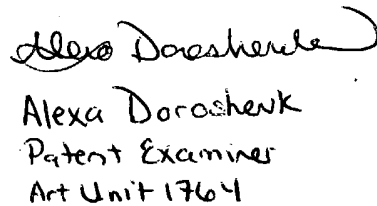 Alexa Doroshenk
Alexa Doroshenk
Patent Examiner
Art Unit 1764